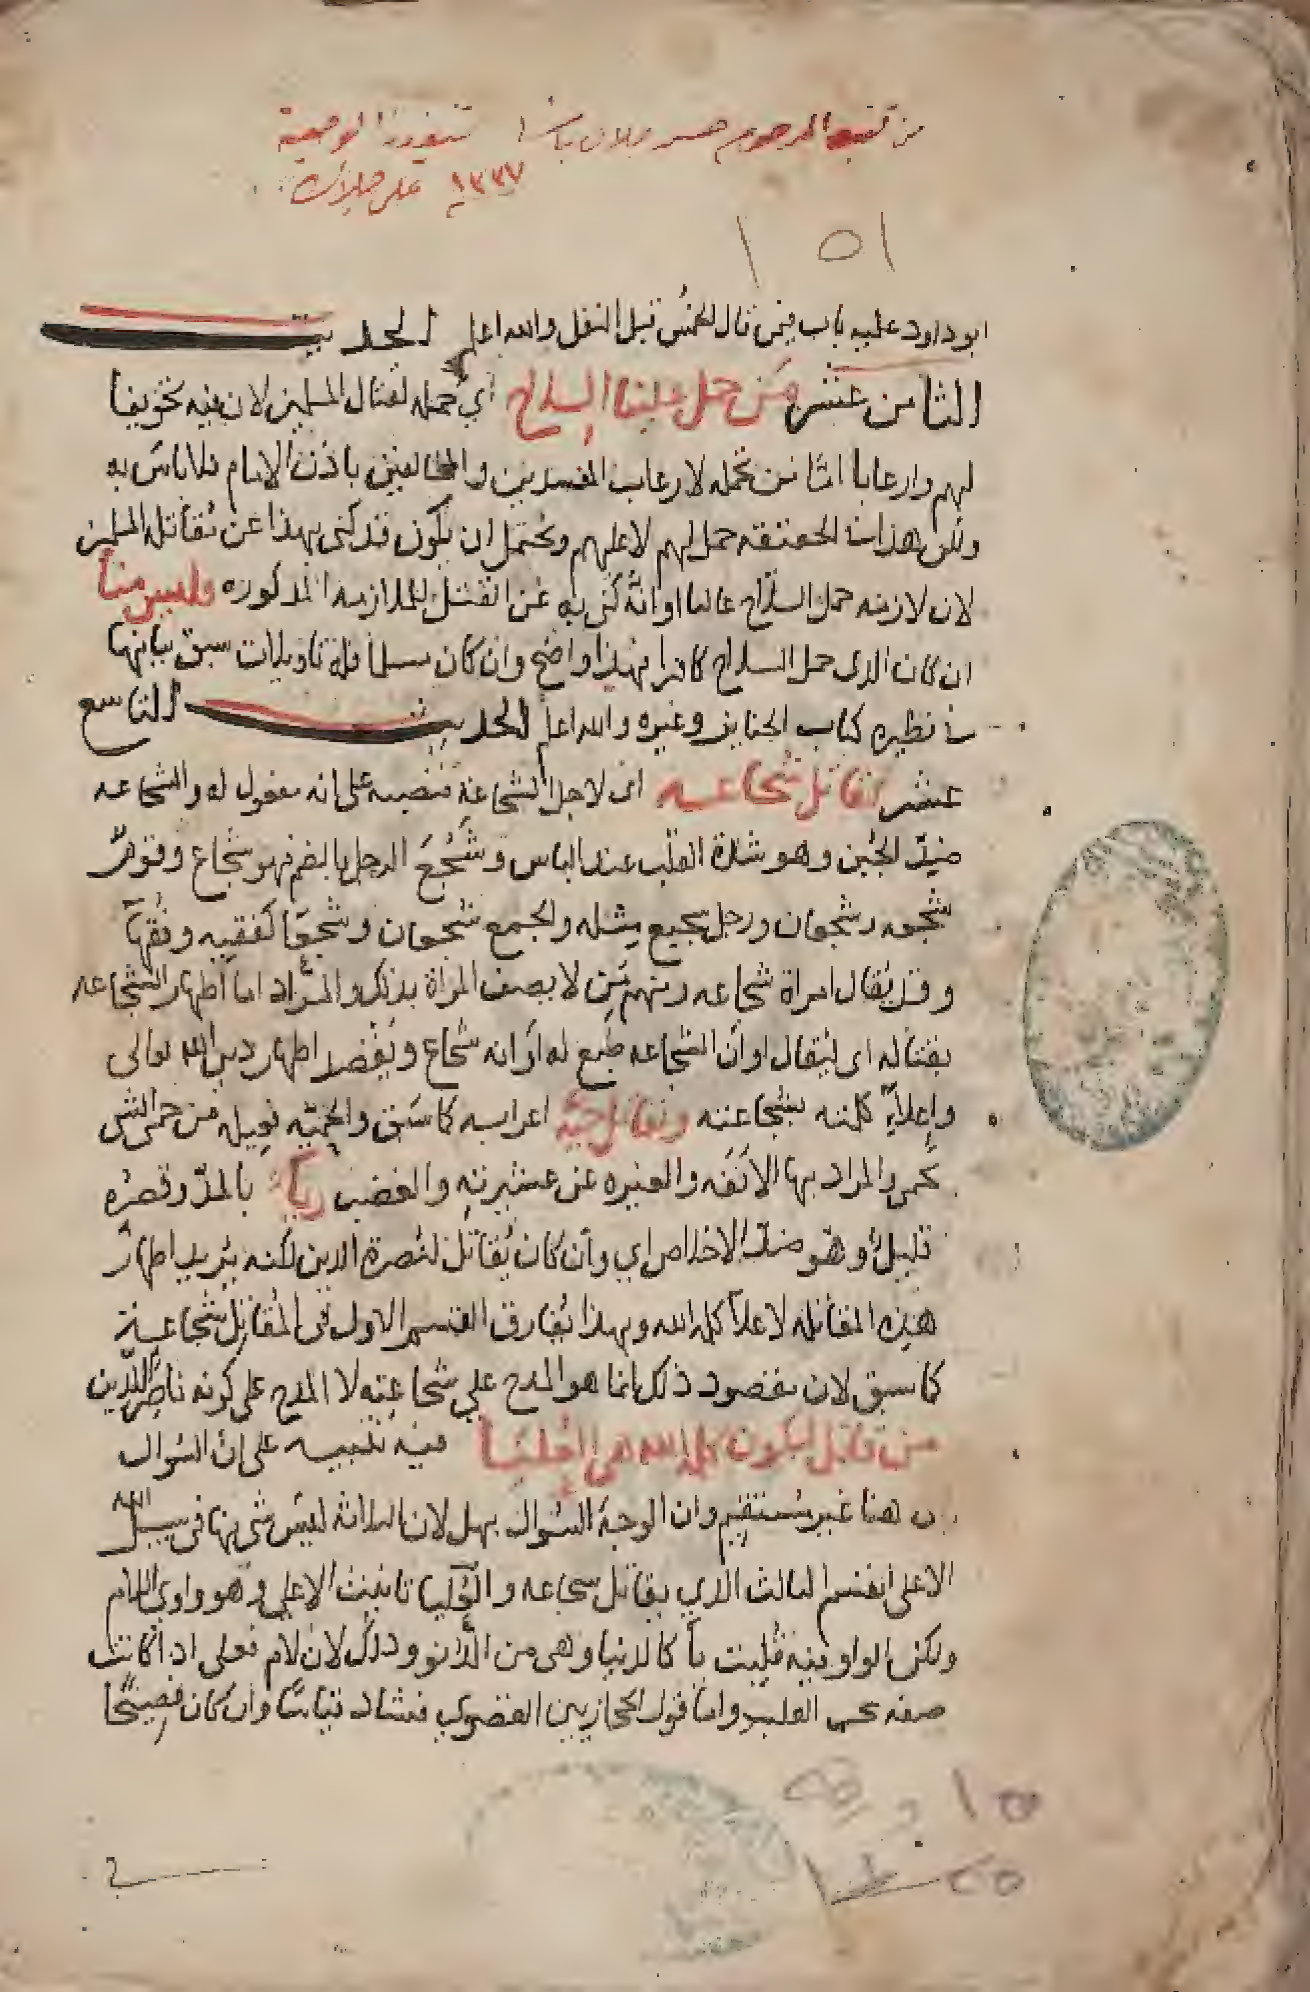 من كتب المرحوم حسن جلال باشا تنفيذا لوصيته
١٣٣٧ على جلال
١٥١
ابو داود عليه باب فيمن قال الخمس قبل النفل والله اعلم الحديث
الثامن عشر من حمل علينا السلاح اي حمله لقتال المسلمين لان فيه تخويفا
لهم وارعابا اما من حمله لارعاب المفسدين والمخالفين باذن الامام فلا باس به
ولكن هذا في الحقيقه حمل لهم لا عليهم ويحتمل ان يكون قد كنى بهذا عن مقاتلة المسلمين
لان لازمه حمل السلاح غالبا او انه كنى به عن القتل للملازمه المذكوره وليس منا
ان كان الذى حمل السلاح كافرا فهذا واضح وان كان مسلما فله تاويلات سبق بيانها
في نظيره كتاب الجنايز وغيره والله اعلم الحديث التاسع
عشر يقاتل شجاعه اى لاجل الشجاعة فنصبه على انه مفعول له والشجاعه
ضد الجبن وهو شدة القلب عند الباس وشجع الرجل بالضم فهو شجاع وقوم
شجعه وشجعان ورجل شجيع مثله والجمع شجعان وشجعا كفقيه وفقها
وقد يقال امراة شجاعه ومنهم من لا يصف المراة بذلك والمراد اما اظهار الشجاعه
بقتاله اى ليقال او ان الشجاعه طبع له او انه شجاع ويقصد اظهار دين الله تعالى
واعلاء كلمته بشجاعته ويقاتل حميّة اعرابيه كما سبق والحميّه فعيله من حمى الشى
يحمى والمراد بها الانفه والغيره عن عشيرته والغضب رياء بالمد وقصره
قليل وهو ضد الاخلاص اي وان كان يقاتل لنصرة الدين لكنه يريد اظهار
هذه المقاتله لاعلا كلمة الله وبهذا يفارق القسم الاول في المقاتل شجاعة
كما سبق لان مقصود ذلك انما هو المدح علي شجاعته لا المدح على كونه ناصر الدين
من قاتل لتكون كلمة الله هى العليا فيه تنبيه على ان السؤال
هنا غير مستقيم وان الوجه السؤال بهل لان الثلاثة ليس شى منها في سبيل الله
الا على القسم الثالث الذي يقاتل شجاعه والعليا تانيث الاعلى وهو واوى اللام
ولكن الواو فيه قلبت يا كالدنيا وهى من الدنو وذلك لان لام فعلى اذا كانت
صفه القلب واما قول الحجازيين القصوى فشاذ قياسا وان كان فصيحا